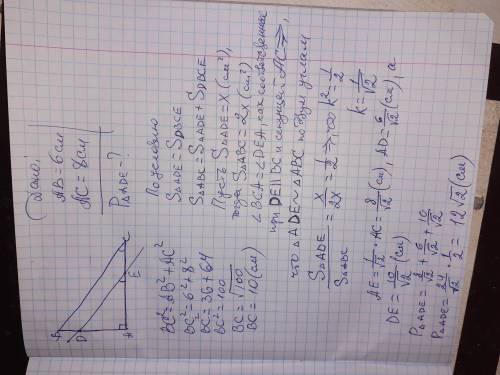 Дано:
AB = 6 см
AC = 8 см
P△ADE = ?
B
D
A
E
C
BC² = AB² + AC²
BC² = 6² + 8²
BC² = 36 + 64
BC² = 100
BC = √100
BC = 10 (см)
По условию
S△ADE = SDBCE
S△ABC = S△ADE + SDBCE
Пусть S△ADE = x (см²),
тогда S△ABC = 2x (см²)
∠BCA = ∠DEA, как соответственные
при DE || BC и секущей AC ⇒,
что △ADE ~ △ABC по двум углам
S△ADE / S△ABC = x/2x = 1/2 ⇒, что k² = 1/2
k = 1/√2
AE = 1/√2 · AC = 8/√2 (см), AD = 6/√2 (см), а
DE = 10/√2 (см)
P△ADE = 8/√2 + 6/√2 + 10/√2
P△ADE = 24/√2 · 1/2 = 12√2 (см)